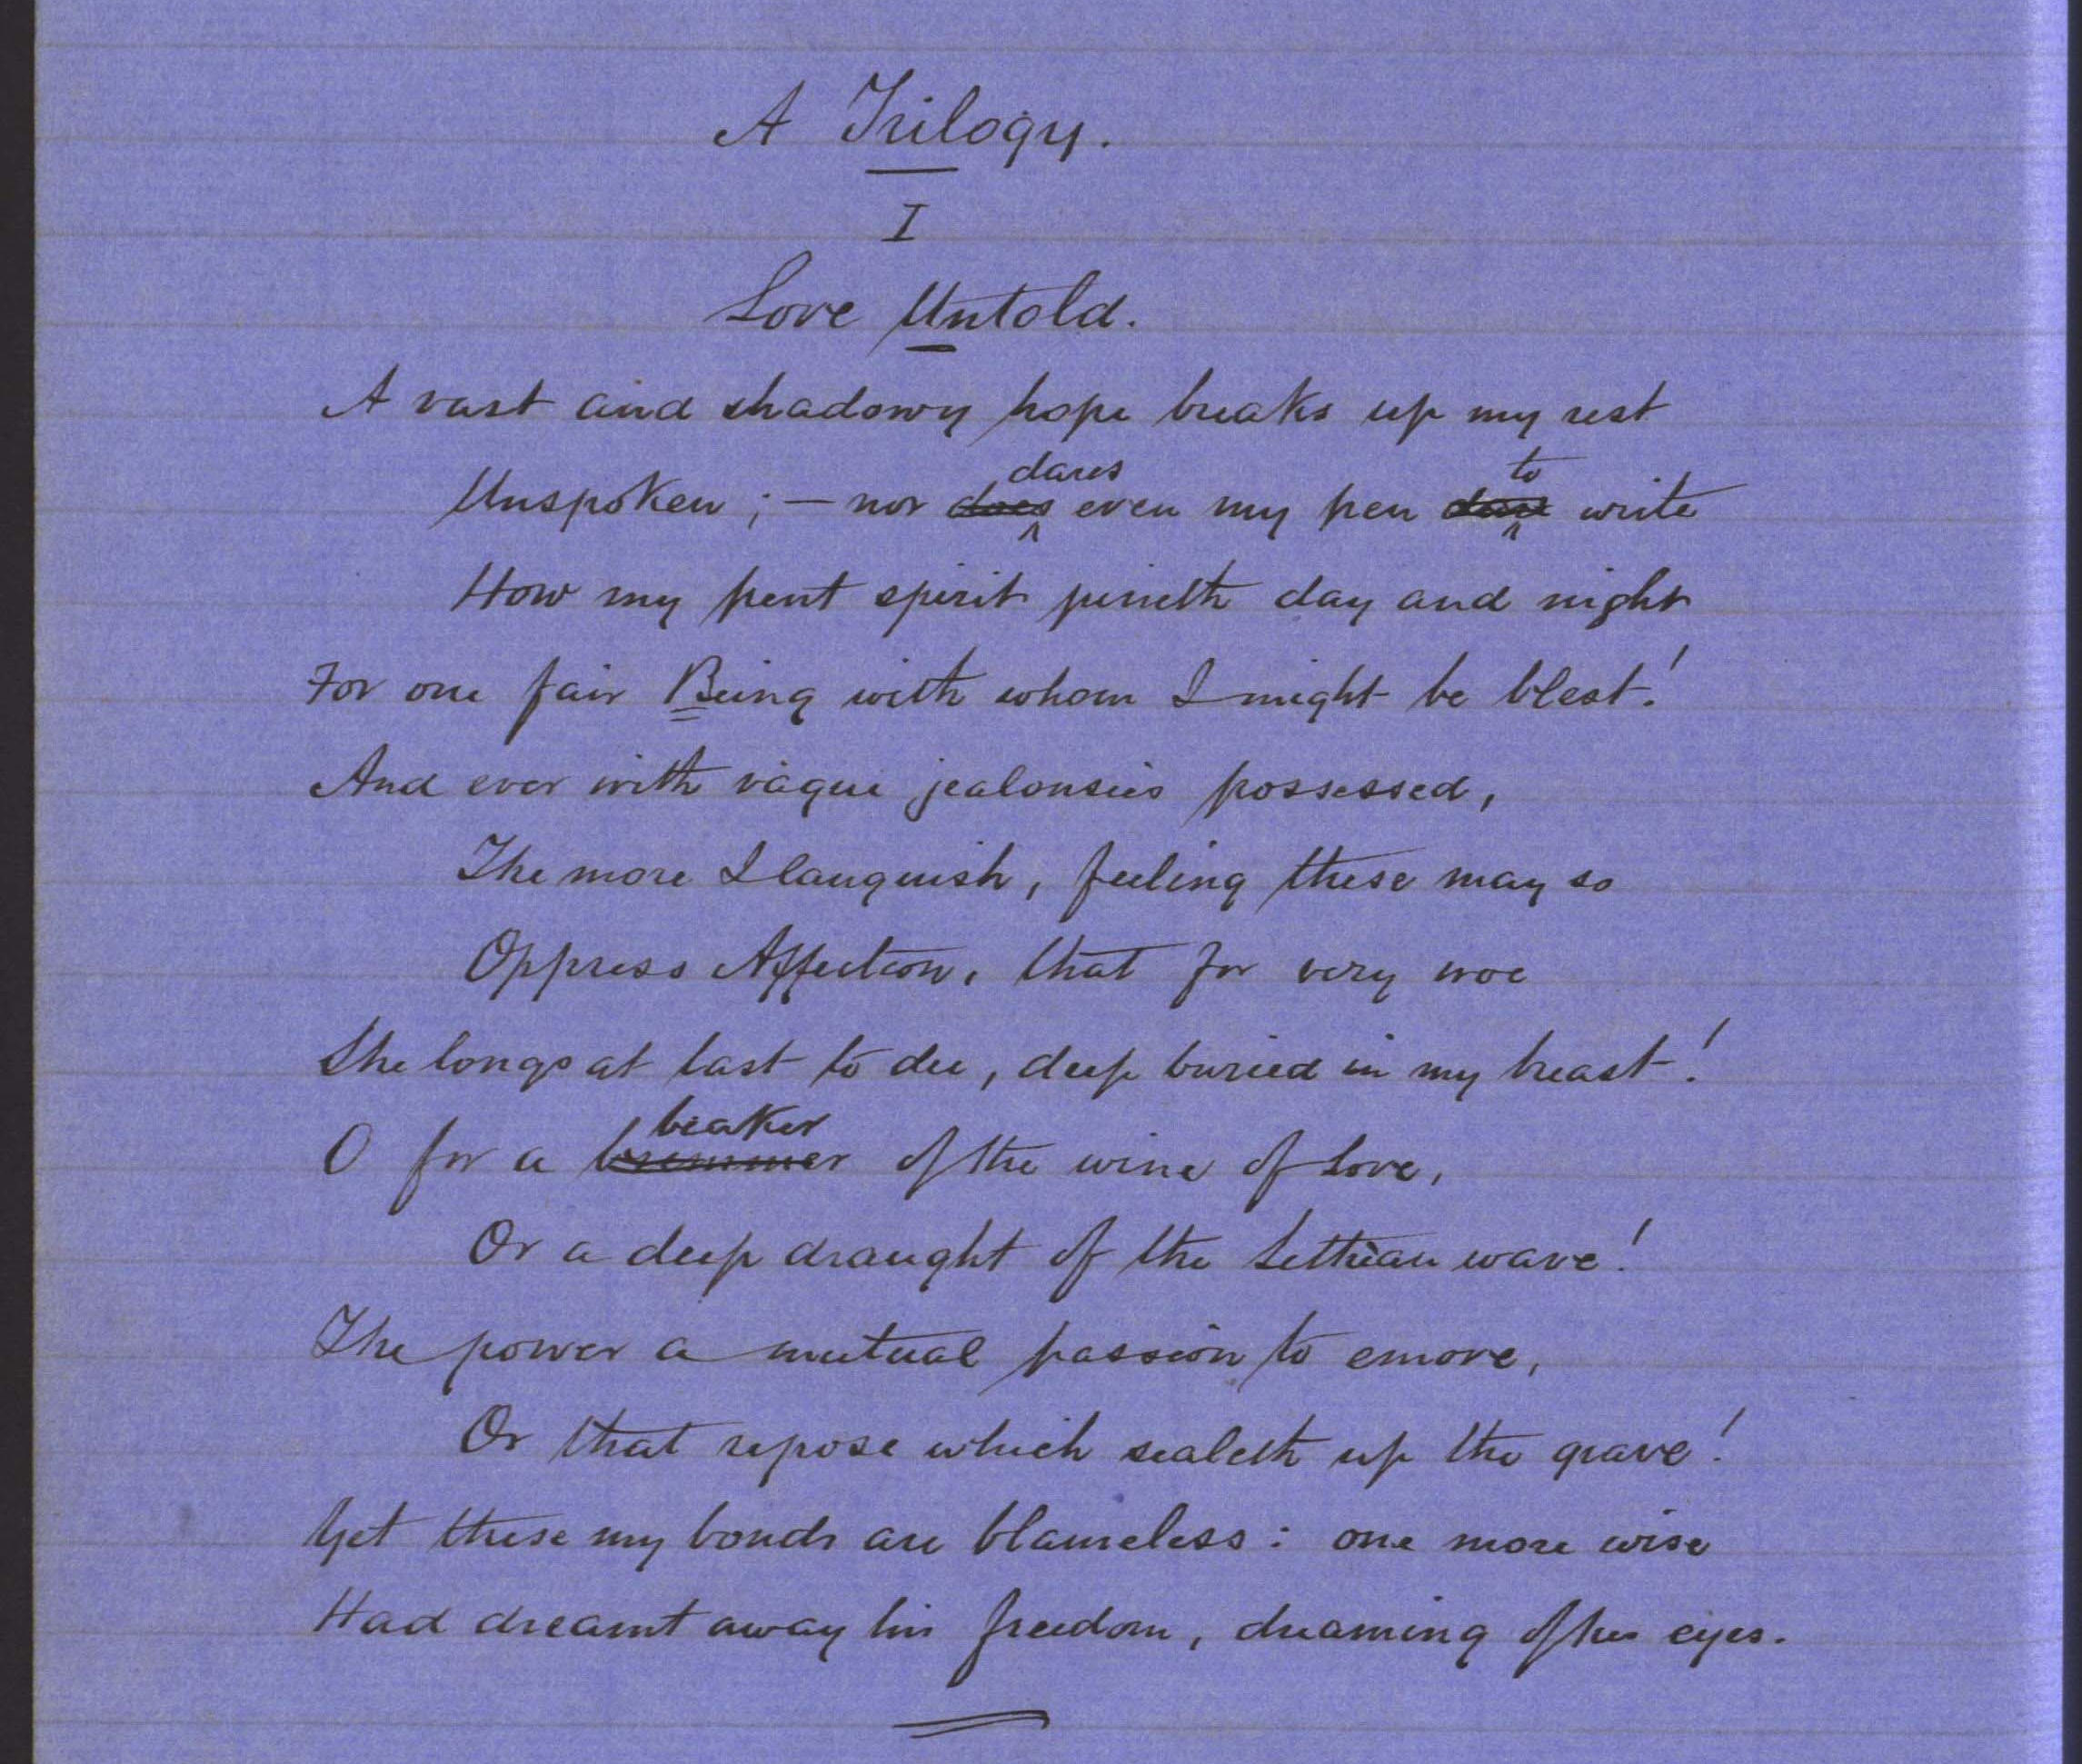 A Trilogy.
I
Love Untold.
A vast and shadowy hope breaks up my rest
dares to
Unspoken; — nor does even my pen dare write
How my pent spirit pineth day and night
For one fair Being with whom I might be blest!
And ever with vague jealousies possessed,
The more I languish, feeling these may so
Oppress Affection, that for very woe
She longs at last to die, deep buried in my breast!
beaker
O for a brimmer of the wine of Love,
Or a deep draught of the Lethean wave!
The power a mutual passion to emove,
Or that repose which sealeth up the grave!
Yet these my bonds are blameless: one more wise
Had dreamt away his freedom, dreaming of her eyes.